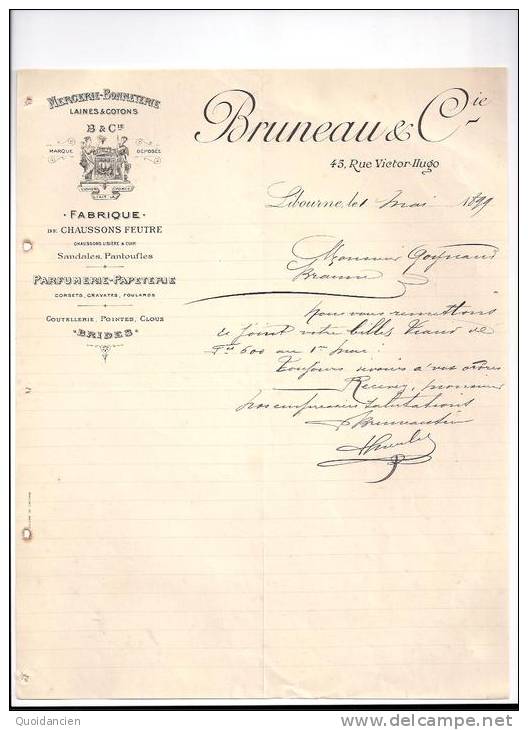 MERCERIE-BONNETERIE
LAINES & COTONS
B & Cie
MARQUE DÉPOSÉE
FABRIQUE
DE CHAUSSONS FEUTRE
CHAUSSONS LISIÈRE & CUIR
Sandales, Pantoufles
PARFUMERIE-PAPETERIE
CORSETS, CRAVATES, FOULARDS
COUTELLERIE, POINTES, CLOUS
BRIDES
Bruneau & Cie
45, Rue Victor-Hugo
Libourne, le 1 mai 1899
Monsieur
Branne
Nous vous remettons
ci joint votre billet de
Frs 600 au 1er mai.
Toujours à vos ordres
Recevez, monsieur
nos empressées salutations
Quoidancien
www.delcampe.net